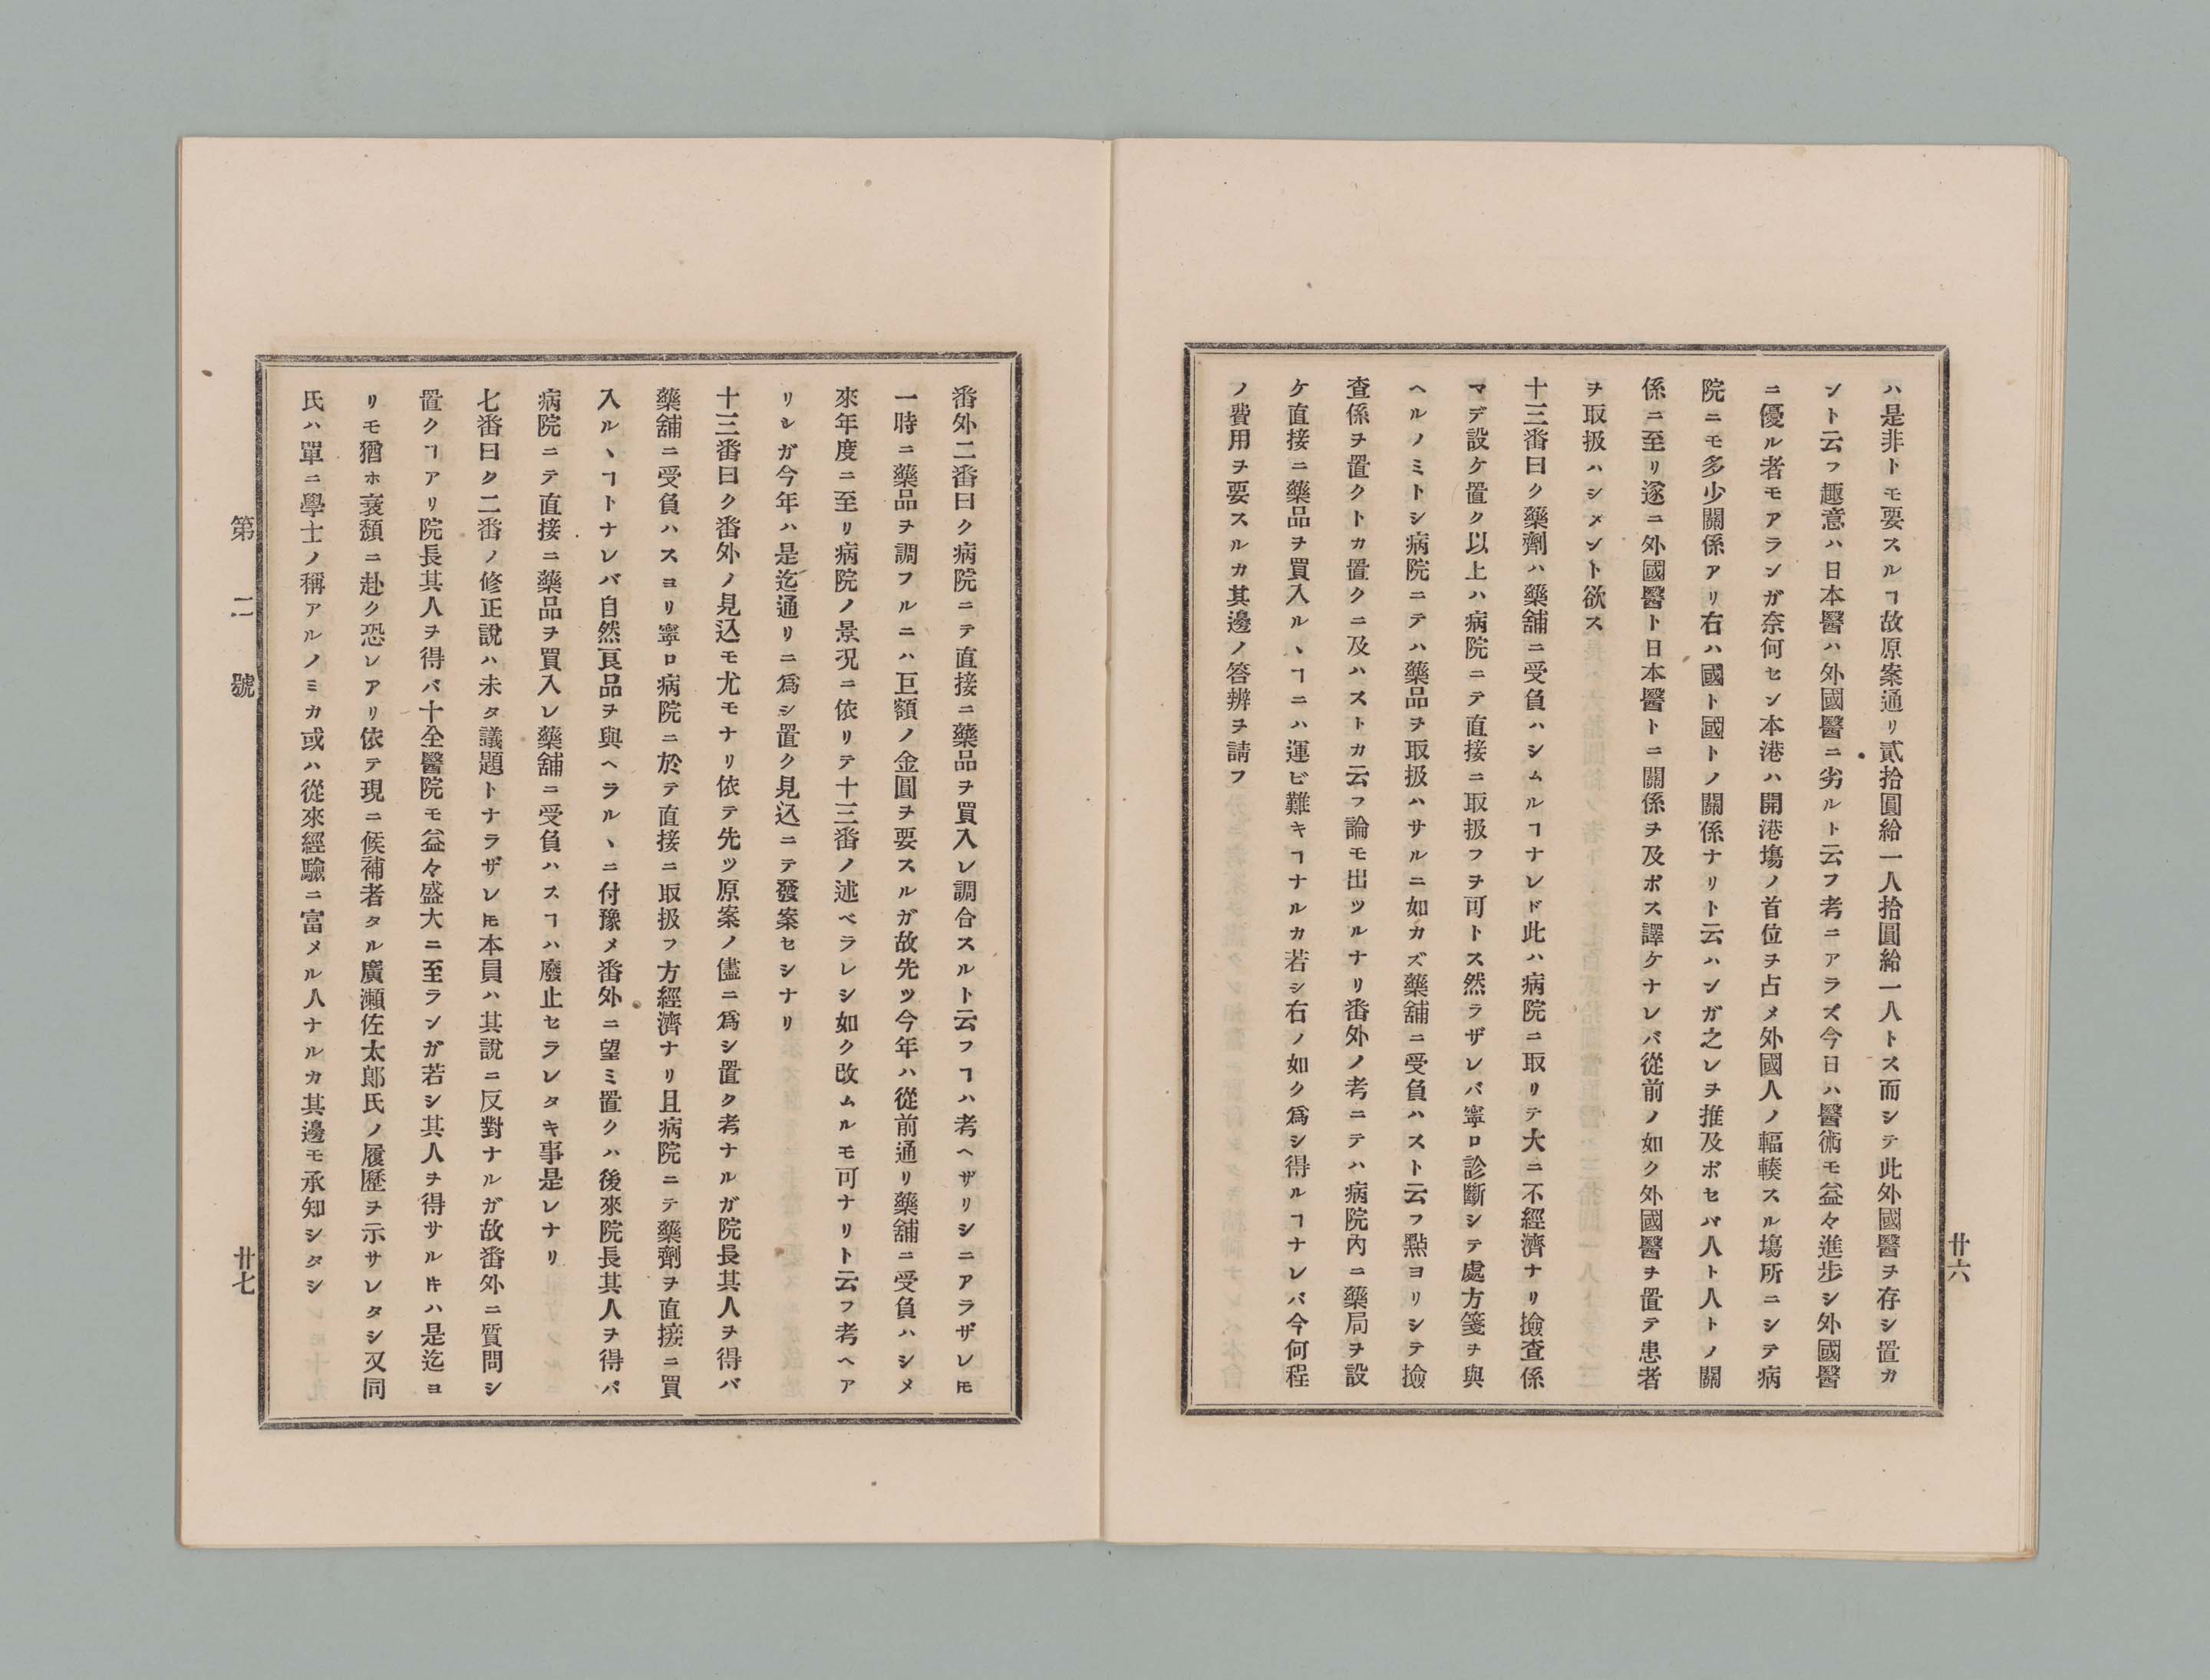 ハ是非トモ要スルヿ故原案通リ貳拾圓給一人拾圓給一人トス而シテ此外國醫ヲ存シ置カ
ント云フ趣意ハ日本醫ハ外國醫ニ劣ルト云フ考ニアラズ今日ハ醫術モ益々進歩シ外國醫
ニ優ル者モアランガ奈何セン本港ハ開港塲ノ首位ヲ占メ外國人ノ輻輳スル塲所ニシテ病
院ニモ多少關係アリ右ハ國ト國トノ關係ナリト云ハンガ之レヲ推及ボセバ人ト人トノ關
係ニ至リ遂ニ外國醫ト日本醫トニ關係ヲ及ボス譯ケナレバ從前ノ如ク外國醫ヲ置テ患者
ヲ取扱ハシメント欲ス
十三番曰ク藥劑ハ藥舖ニ受負ハシムルヿナレド此ハ病院ニ取リテ大ニ不經濟ナリ撿査係
マデ設ケ置ク以上ハ病院ニテ直接ニ取扱フヲ可トス然ラザレバ寧ロ診斷シテ處方箋ヲ與
ヘルノミトシ病院ニテハ藥品ヲ取扱ハサルニ如カズ藥舖ニ受負ハスト云フ㸃ヨリシテ撿
査係ヲ置クトカ置クニ及ハストカ云フ論モ出ツルナリ番外ノ考ニテハ病院內ニ藥局ヲ設
ケ直接ニ藥品ヲ買入ルヽヿニハ運ビ難キヿナルカ若シ右ノ如ク爲シ得ルヿナレバ今何程
ノ費用ヲ要スルカ其邊ノ答辨ヲ請フ
廿六
番外二番曰ク病院ニテ直接ニ藥品ヲ買入レ調合スルト云フヿハ考ヘザリシニアラザレ𪜈
一時ニ藥品ヲ調フルニハ巨額ノ金圓ヲ要スルガ故先ツ今年ハ從前通リ藥舖ニ受負ハシメ
來年度ニ至リ病院ノ景況ニ依リテ十三番ノ述ベラレシ如ク改ムルモ可ナリト云フ考ヘア
リシガ今年ハ是迄通リニ爲シ置ク見込ニテ發案セシナリ
十三番曰ク番外ノ見込モ尤モナリ依テ先ツ原案ノ儘ニ爲シ置ク考ナルガ院長其人ヲ得バ
藥舖ニ受負ハスヨリ寧ロ病院ニ於テ直接ニ取扱フ方經濟ナリ且病院ニテ藥劑ヲ直接ニ買
入ルヽヿトナレバ自然良品ヲ與ヘラルヽニ付豫メ番外ニ望ミ置クハ後來院長其人ヲ得バ
病院ニテ直接ニ藥品ヲ買入レ藥舖ニ受負ハスヿハ廢止セラレタキ事是レナリ
七番曰ク二番ノ修正說ハ未タ議題トナラザレ𪜈本員ハ其說ニ反對ナルガ故番外ニ質問シ
置クヿアリ院長其人ヲ得バ十全醫院モ益々盛大ニ至ランガ若シ其人ヲ得サル𪜈ハ是迄ヨ
リモ猶ホ衰頽ニ赴ク恐レアリ依テ現ニ候補者タル廣瀬佐太郎氏ノ履歷ヲ示サレタシ又同
氏ハ單ニ學士ノ稱アルノミカ或ハ從來經驗ニ富メル人ナルカ其邊モ承知シタシ
第二號
廿七